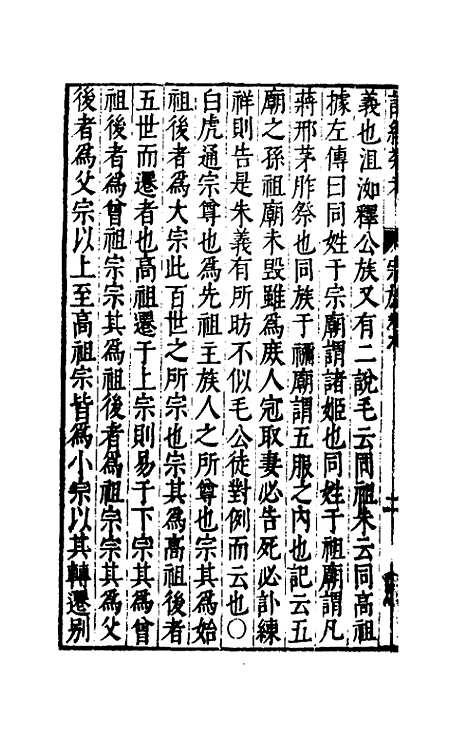 義也沮洳釋公族又有二說毛云同祖朱云同高祖
據左傳曰同姓于宗廟謂諸姬也同姓于祖廟謂凡
蔣邢茅胙祭也同族于禰廟謂五服之內也記云五
廟之孫祖廟未毀雖為庶人冠取妻必告死必訃練
祥則告是朱義有所昉不似毛公徒對例而云也〇
白虎通宗尊也為先祖主族人之所尊也宗其為始
祖後者為大宗此百世之所宗也宗其為高祖後者
五世而遷者也高祖遷于上宗則易于下宗其為曾
祖後者為曾祖宗宗其為祖後者為祖宗宗其為父
後者為父宗以上至高祖宗皆為小宗以其轉遷别